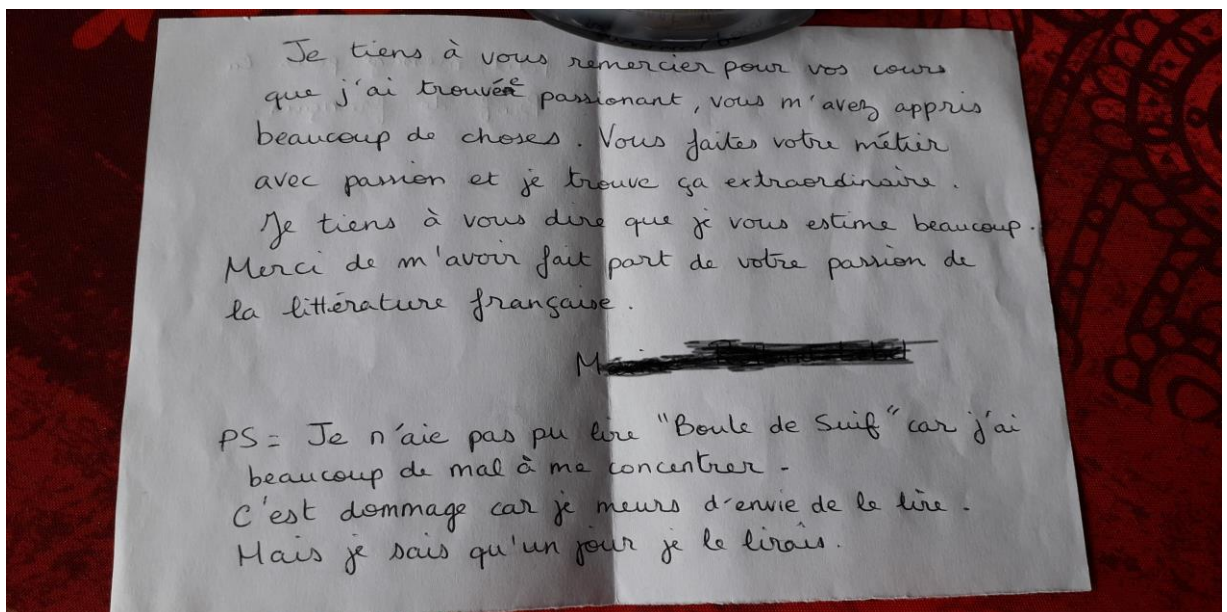 Je tiens à vous remercier pour vos cours
que j'ai trouvée passionant, vous m'avez appris
beaucoup de choses. Vous faites votre métier
avec passion et je trouve ça extraordinaire.
Je tiens à vous dire que je vous estime beaucoup.
Merci de m'avoir fait part de votre passion de
la littérature française.
PS = Je n'aie pas pu lire "Boule de Suif" car j'ai
beaucoup de mal à me concentrer -
C'est dommage car je meurs d'envie de le lire.
Mais je sais qu'un jour je le lirais.